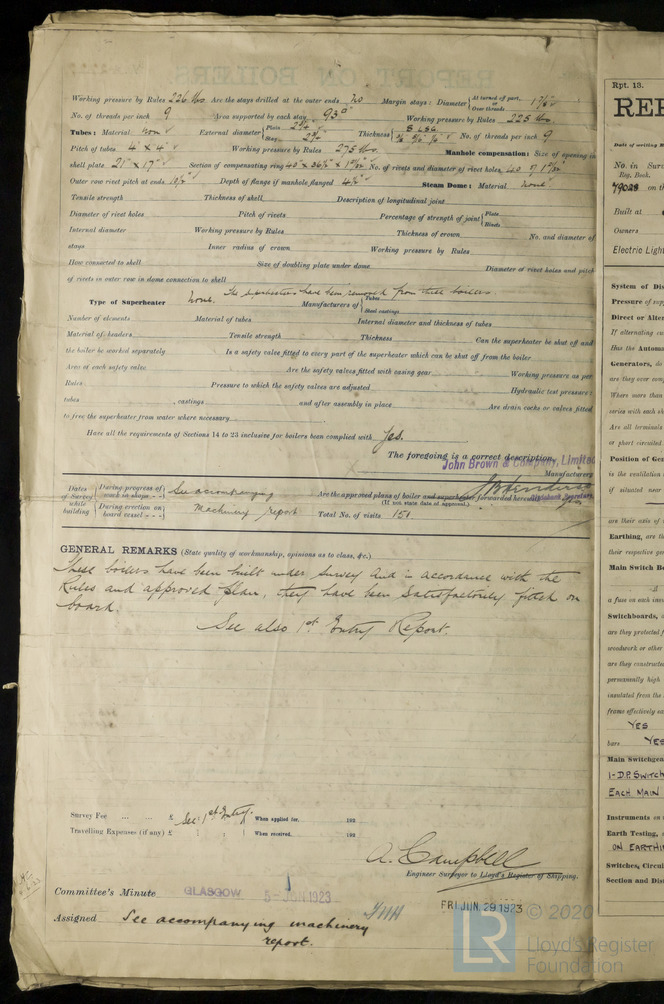 Working pressure by Rules 226 lbs Are the stays drilled at the outer ends No Margin stays: Diameter { At turned off part, or Over threads
No. of threads per inch 9 Area supported by each stay 93" Working pressure by Rules 225 lbs.
Tubes: Material Iron External diameter { Plain 2¾" Stay 2¾" Thickness { 8 LSG No. of threads per inch 9
Pitch of tubes 4" x 4" Working pressure by Rules 275 lbs. Manhole compensation: Size of opening in
shell plate 21" x 17" Section of compensating ring No. of rivets and diameter of rivet holes
Outer row rivet pitch at ends Depth of flange if manhole flanged Steam Dome: Material None
Tensile strength Thickness of shell Description of longitudinal joint
Diameter of rivet holes Pitch of rivets Percentage of strength of joint { Plate Rivets
Internal diameter Working pressure by Rules Thickness of crown No. and diameter of
stays Inner radius of crown Working pressure by Rules
How connected to shell Size of doubling plate under dome Diameter of rivet holes and pitch
of rivets in outer row in dome connection to shell
Type of Superheater None. The superheaters have been removed from these boilers. Manufacturers of { Tubes Steel castings
Number of elements Material of tubes Internal diameter and thickness of tubes
Material of headers Tensile strength Thickness Can the superheater be shut off and
the boiler be worked separately Is a safety valve fitted to every part of the superheater which can be shut off from the boiler
Area of each safety valve Are the safety valves fitted with easing gear Working pressure as per
Rules Pressure to which the safety valves are adjusted Hydraulic test pressure:
tubes , castings and after assembly in place Are drain cocks or valves fitted
to free the superheater from water where necessary
Have all the requirements of Sections 14 to 23 inclusive for boilers been complied with Yes.
The foregoing is a correct description,
John Brown & Company, Limited
Manufacturer
Dates of Survey while building { During progress of work in shops - - } See accompanying Are the approved plans of boiler and superheater forwarded herewith
(If not state date of approval.)
{ During erection on board vessel - - - } Machinery report Total No. of visits 151
GENERAL REMARKS (State quality of workmanship, opinions as to class, &c.)
These boilers have been built under Survey and in accordance with the
Rules and approved plan, they have been satisfactorily fitted on
board.
See also 1st Entry Report.
Survey Fee ... ... £ See 1st Entry. When applied for, 192
Travelling Expenses (if any) £ : : When received, 192
A. Campbell
Engineer Surveyor to Lloyd's Register of Shipping.
Committee's Minute GLASGOW 5-JUN 1923
FRI. JUN. 29 1923
Assigned See accompanying machinery
report.
© 2020
LR Lloyd's Register
Foundation
Rpt. 13.
REP
Date of writing
No. in
Reg. Book.
79028 on th
Built at
Owners
Electric Light
System of Dis
Pressure of sup
Direct or Alter
If alternating cu
Has the Automa
Generators, do
are they over com
Where more than
series with each sh
Are all terminals
or short circuited
Position of Gen
is the ventilation
if situated near
are their axis of
Earthing, are th
their respective ge
Main Switch Bo
a fuse on each insu
Switchboards,
are they protected f
woodwork or other
are they constructed
permanently high
insulated from the
frame effectively ea
YES
bars YES
Main Switchgear
1-D.P. SWITCH
EACH MAIN
Instruments on
Earth Testing,
ON EARTHI
Switches, Circui
Section and Dis